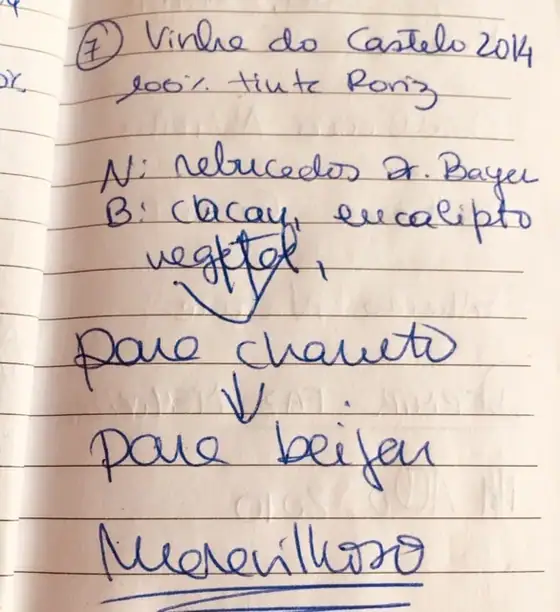 7 Vinha do Castelo 2014
100% tinta Roriz
N: rebucados Dr. Bayer
B: cacau, eucalipto
vegetal,
para charuto
para beijar
Maravilhoso